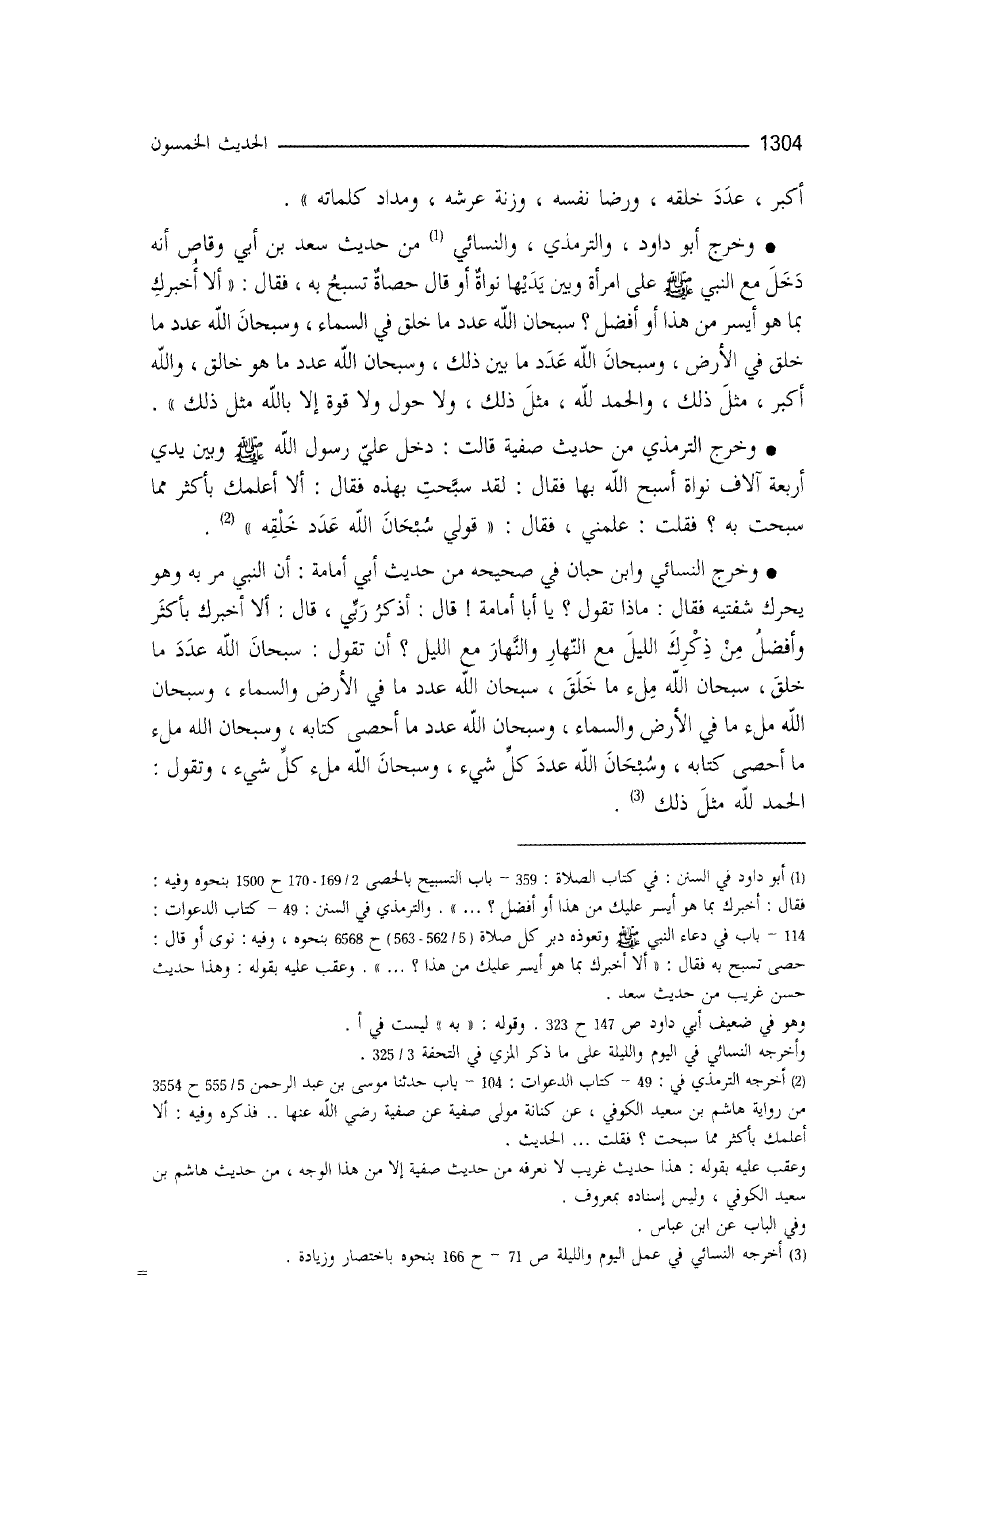 1304 الحديث الخمسون
أكبر ، عدَدَ خلقه ، ورضا نفسه ، وزنة عرشه ، ومداد كلماته » .
● وخرج أبو داود ، والترمذي ، والنسائي (1) من حديث سعد بن أبي وقاص أنه
دَخَلَ مع النبي ﷺ على امرأة وبين يَدَيْها نواةٌ أو قال حصاةٌ تسبحُ به ، فقال : « ألا أُخبركِ
بما هو أيسر من هذا أو أفضل ؟ سبحان اللّه عدد ما خلق في السماء ، وسبحانَ اللّه عدد ما
خلق في الأرض ، وسبحانَ اللّه عَدَد ما بين ذلك ، وسبحان اللّه عدد ما هو خالق ، واللّه
أكبر ، مثلَ ذلك ، والحمد للّه ، مثلَ ذلك ، ولا حول ولا قوة إلا باللّه مثل ذلك » .
● وخرج الترمذي من حديث صفية قالت : دخل عليّ رسول اللّه ﷺ وبين يدي
أربعة آلاف نواة أسبح اللّه بها فقال : لقد سبَّحتِ بهذه فقال : ألا أعلمك بأكثر مما
سبحت به ؟ فقلت : علمني ، فقال : « قولي سُبْحَانَ اللّه عَدَد خَلْقِه » (2) .
● وخرج النسائي وابن حبان في صحيحه من حديث أبي أمامة : أن النبي مر به وهو
يحرك شفتيه فقال : ماذا تقول ؟ يا أبا أمامة ! قال : أذكرُ رَبِّي ، قال : ألا أخبرك بأكثَر
وأفضلُ مِنْ ذِكْرِكَ الليلَ مع النّهارِ والنَّهارَ مع الليل ؟ أن تقول : سبحانَ اللّه عدَدَ ما
خلقَ ، سبحان اللّه مِلء ما خَلَقَ ، سبحان اللّه عدد ما في الأرض والسماء ، وسبحان
اللّه ملء ما في الأرض والسماء ، وسبحان اللّه عدد ما أحصى كتابه ، وسبحان الله ملء
ما أحصى كتابه ، وسُبْحَانَ اللّه عددَ كلِّ شيء ، وسبحانَ اللّه ملء كلِّ شيء ، وتقول :
الحمد للّه مثلَ ذلك (3) .
(1) أبو داود في السنن : في كتاب الصلاة : 359 - باب التسبيح بالحصى 2/ 169 - 170 ح 1500 بنحوه وفيه :
فقال : أخبرك بما هو أيسر عليك من هذا أو أفضل ؟ ... » . والترمذي في السنن : 49 - كتاب الدعوات :
114 - باب في دعاء النبي ﷺ وتعوذه دبر كل صلاة (5/ 562 - 563) ح 6568 بنحوه ، وفيه : نوى أو قال :
حصى تسبح به فقال : « ألا أخبرك بما هو أيسر عليك من هذا ؟ ... » . وعقب عليه بقوله : وهذا حديث
حسن غريب من حديث سعد .
وهو في ضعيف أبي داود ص 147 ح 323 . وقوله : « به » ليست في أ .
وأخرجه النسائي في اليوم والليلة على ما ذكر المزي في التحفة 3/ 325 .
(2) أخرجه الترمذي في : 49 - كتاب الدعوات : 104 - باب حدثنا موسى بن عبد الرحمن 5/ 555 ح 3554
من رواية هاشم بن سعيد الكوفي ، عن كنانة مولى صفية عن صفية رضي اللّه عنها .. فذكره وفيه : ألا
أعلمك بأكثر مما سبحت ؟ فقلت ... الحديث .
وعقب عليه بقوله : هذا حديث غريب لا نعرفه من حديث صفية إلا من هذا الوجه ، من حديث هاشم بن
سعيد الكوفي ، وليس إسناده بمعروف .
وفي الباب عن ابن عباس .
(3) أخرجه النسائي في عمل اليوم والليلة ص 71 - ح 166 بنحوه باختصار وزيادة .
=